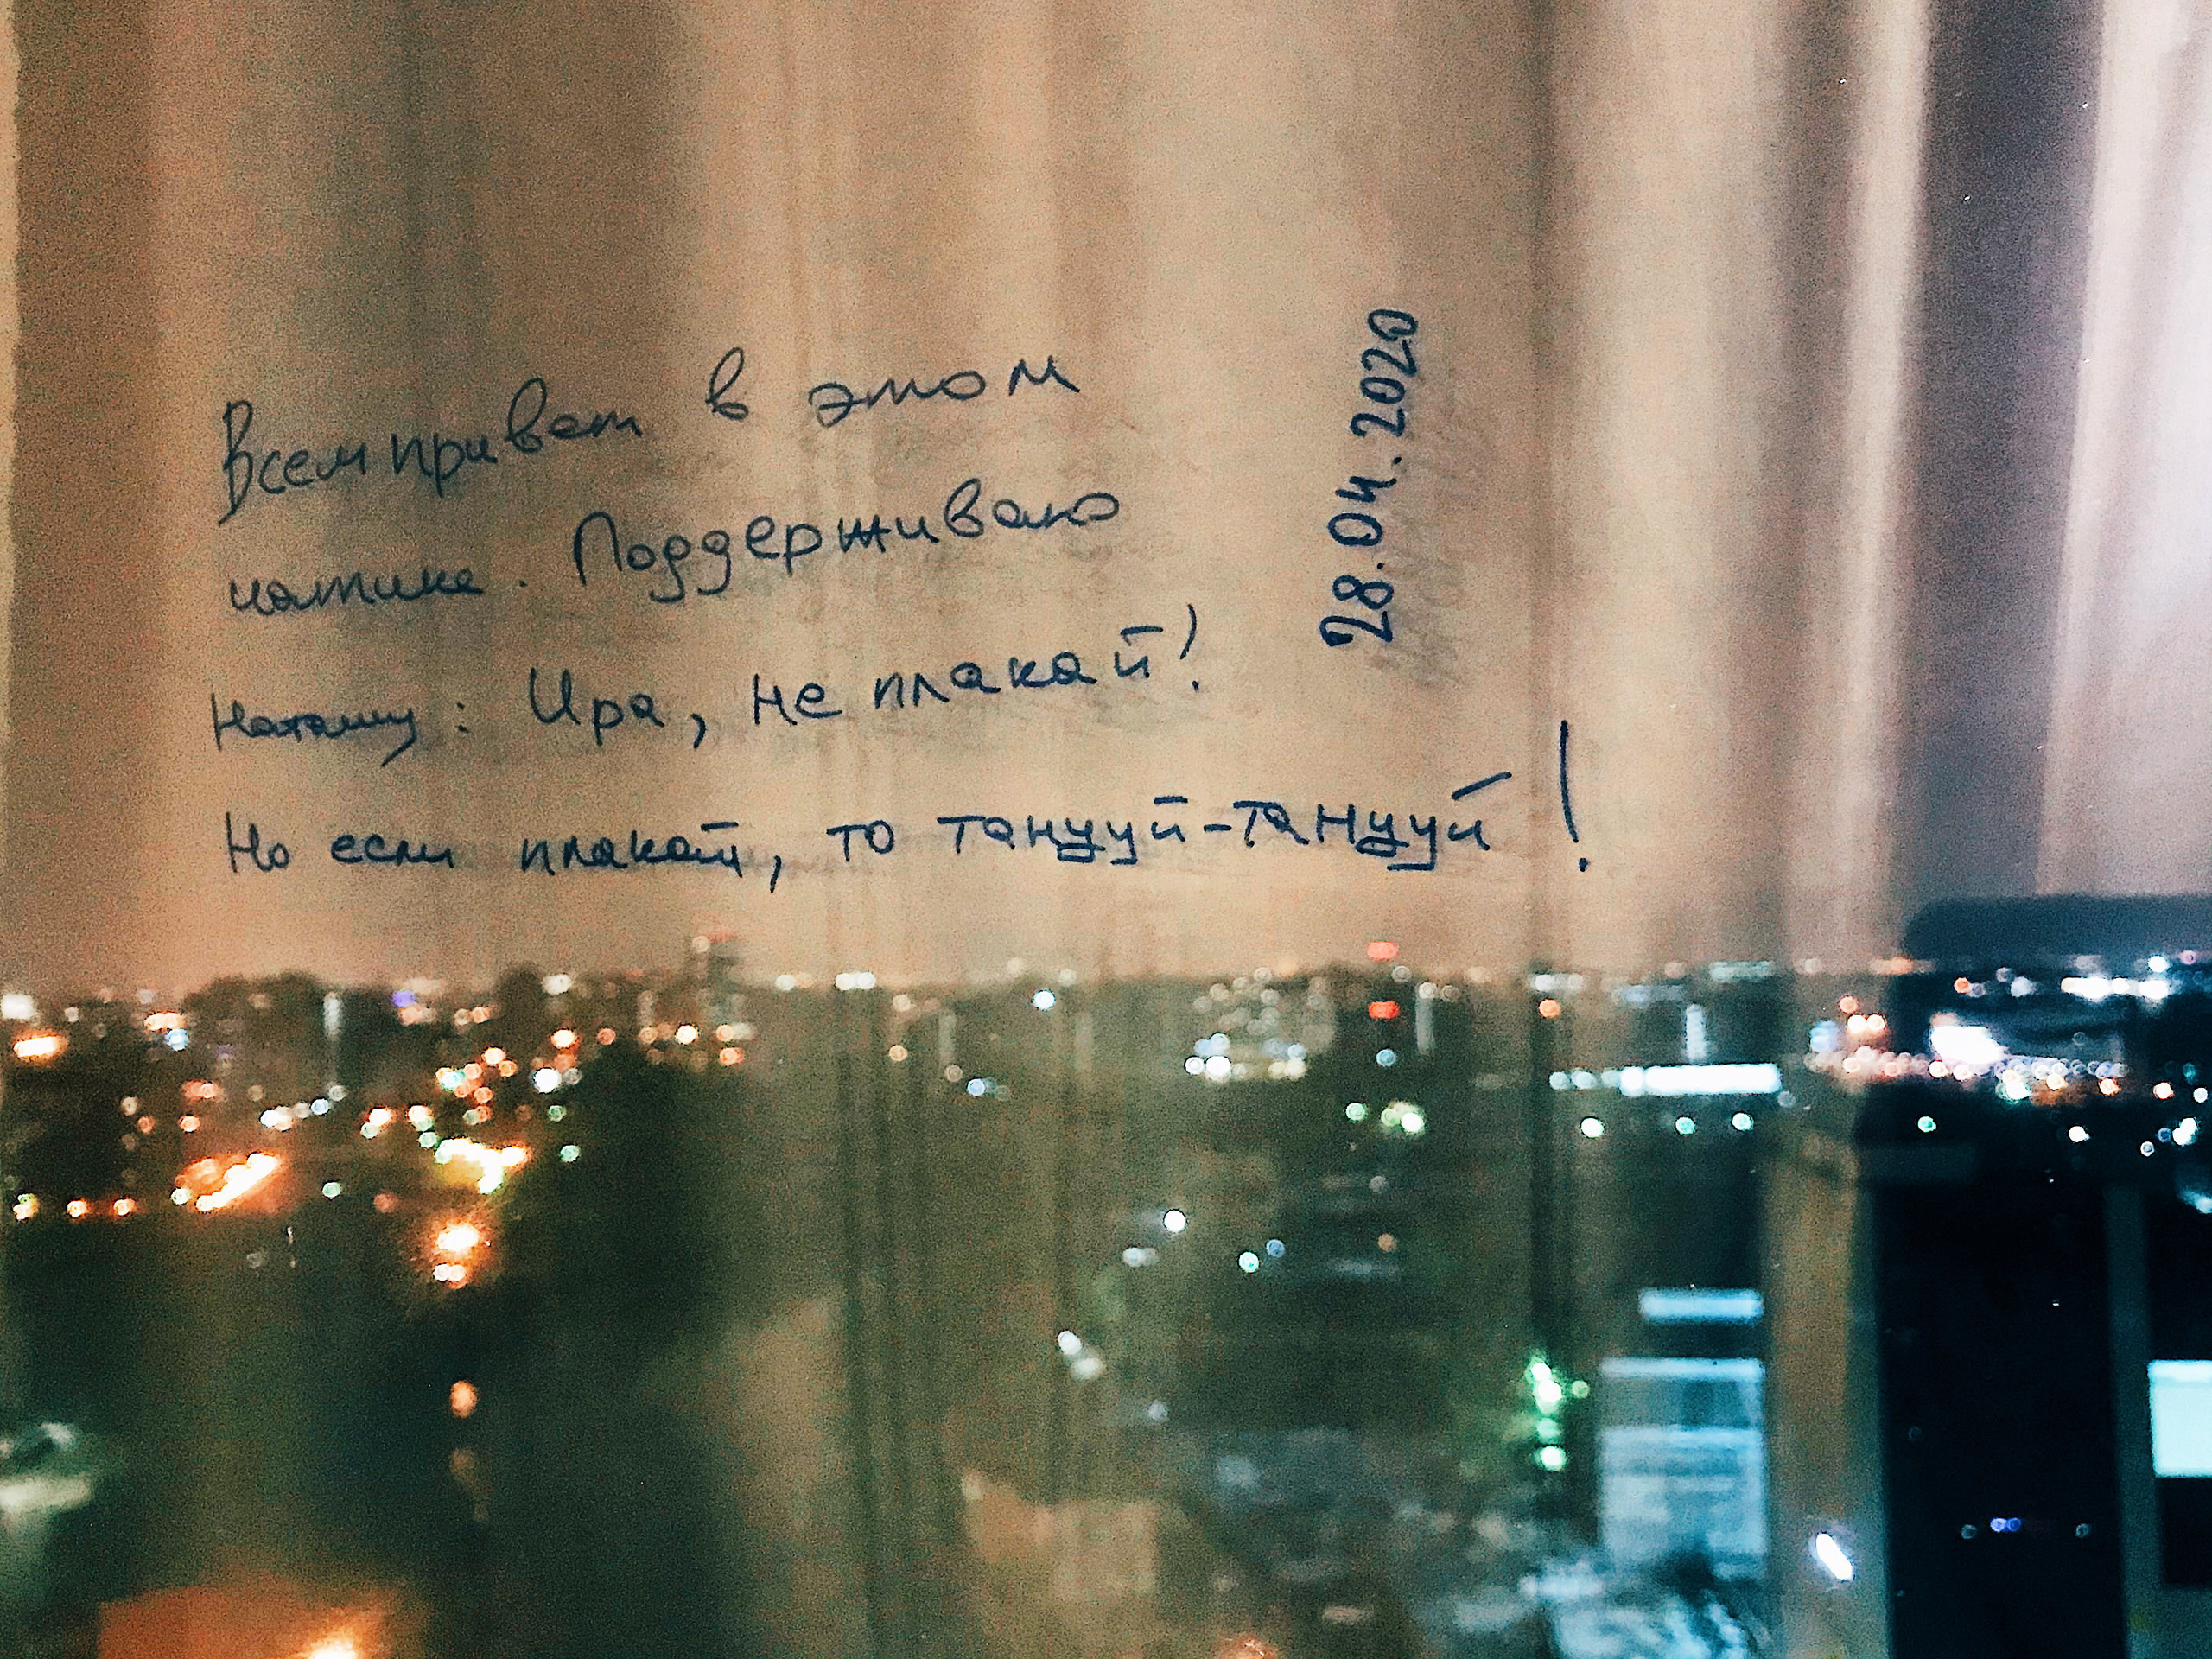 Всем привет в этом
чатике. Поддерживаю
Наташу: Ира, не плакай!
Но если плакай, то танууй-танууй!
28.04.2020